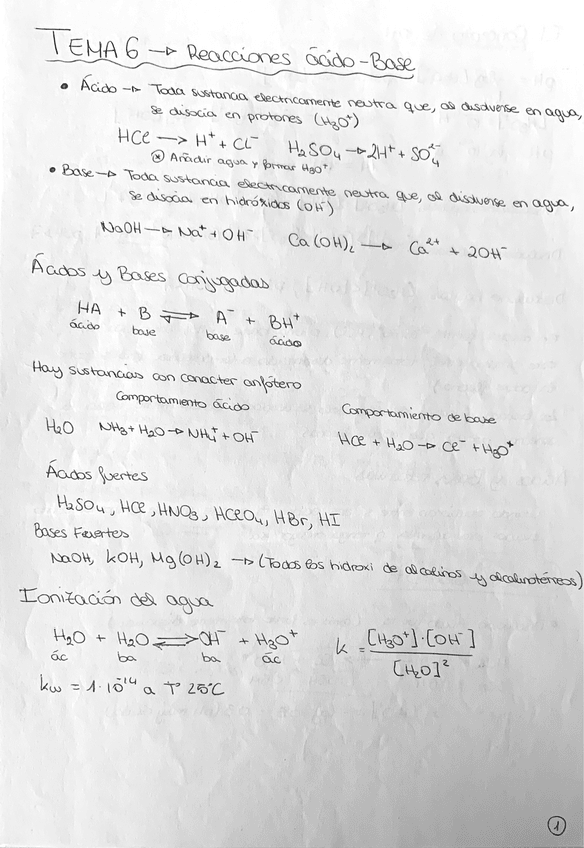 TEMA 6 → Reacciones ácido-Base
• Ácido → Toda sustancia electricamente neutra que, al disolverse en agua,
se disocia en protones (H₃O⁺)
HCl → H⁺ + Cl⁻ H₂SO₄ → 2H⁺ + SO₄²⁻
⊛ Añadir agua y formar H₃O⁺
• Base → Toda sustancia electricamente neutra que, al disolverse en agua,
se disocia en hidróxidos (OH⁻)
NaOH → Na⁺ + OH⁻ Ca(OH)₂ → Ca²⁺ + 2OH⁻
Ácidos y Bases conjugadas
HA + B ⇌ A⁻ + BH⁺
ácido base base ácido
Hay sustancias con caracter anfótero
Comportamiento ácido Comportamiento de base
H₂O NH₃ + H₂O → NH₄⁺ + OH⁻ HCl + H₂O → Cl⁻ + H₃O⁺
Ácidos fuertes
H₂SO₄, HCl, HNO₃, HClO₄, HBr, HI
Bases Fuertes
NaOH, KOH, Mg(OH)₂ → (Todos los hidroxi de alcalinos y alcalinotérreos)
Ionización del agua
H₂O + H₂O ⇌ OH⁻ + H₃O⁺ K = [H₃O⁺]·[OH⁻] / [H₂O]²
ác ba ba ác
kw = 1·10⁻¹⁴ a Tº 25ºC
1